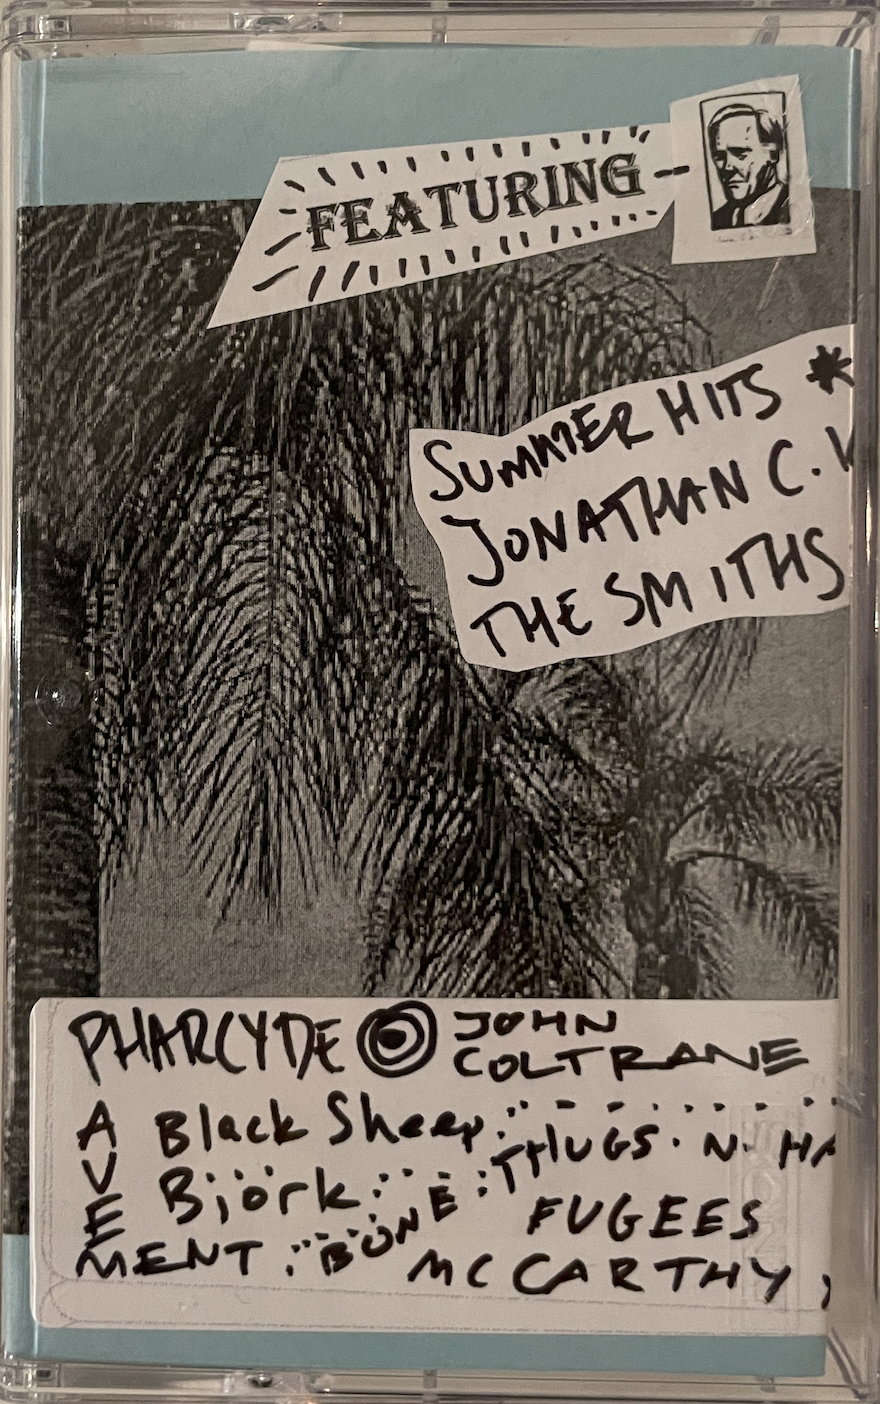 FEATURING
SUMMER HITS *
JONATHAN C.
THE SMITHS
PHARCYDE
JOHN
COLTRANE
AVEMENT
Black Sheep
Björk
BONE THUGS N HA
FUGEES
MCCARTHY,